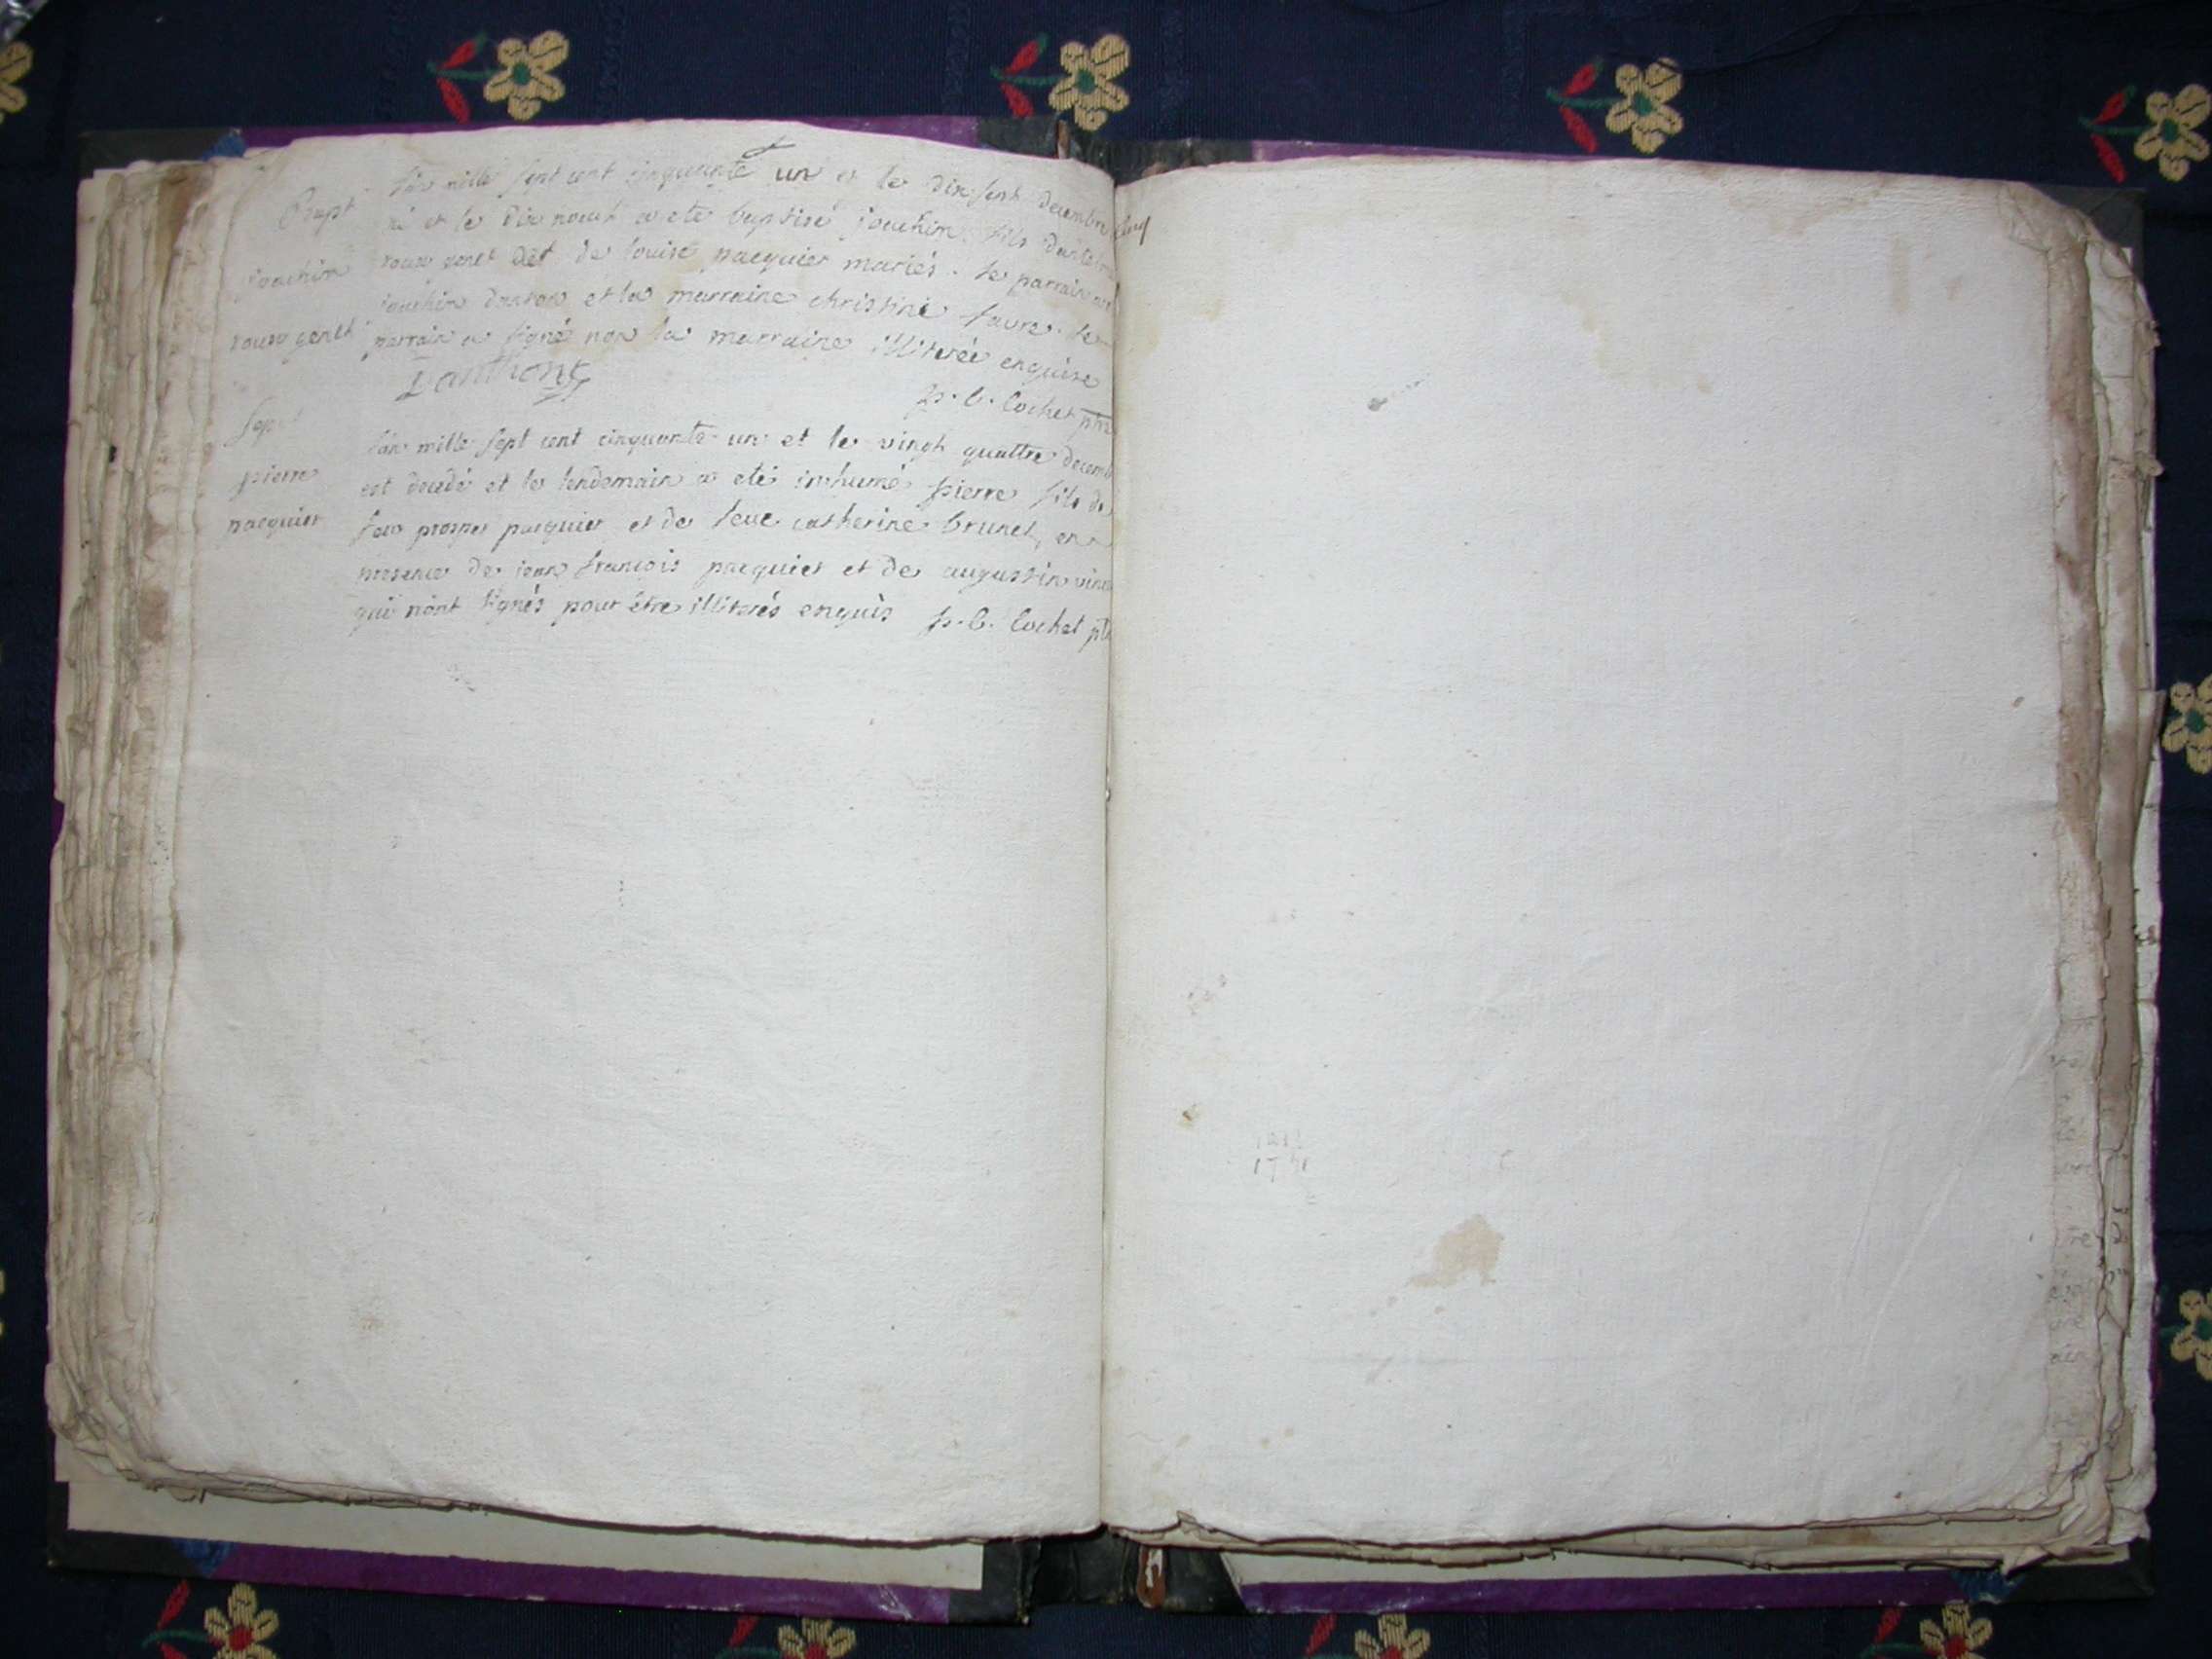 Bapt
joachim
roux genet
l'an mille sept cent cinquante un et le dix sept decembre
né et le dix noeuf a eté baptisé joachim fils
roux genet det de louise pacquier mariés. le parrain
joachim et la marraine christine faure. le
parrain a signé non la marraine illiterée enquise
Danthony
p. b. Cochet ptre
Sep
pierre
pacquier
l'an mille sept cent cinquante un et le vingt quattre decemb
est decedé et le lendemain a eté inhumé pierre fils de
feu prosper pacquier et de feue catherine brunet, en
presence de jean françois pacquier et de augustin
qui n'ont signés pour être illiterés enquis p. b. Cochet ptr